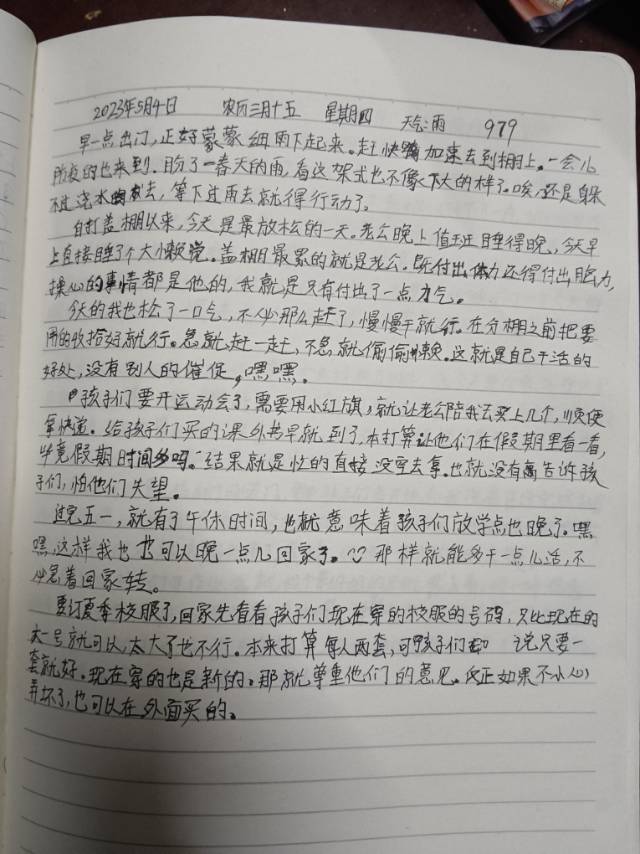 2023年5月4日 农历三月十五 星期四 天气:雨 979
早一点出门,正好蒙蒙细雨下起来。赶快 加速去到棚上。一会儿
所有的也来到。盼了一春天的雨,看这架式也不像下大的样子。唉,还是躲
不过浇水 去,等下过雨去就得行动了。
自打盖棚以来,今天是最放松的一天。老公晚上值班睡得晚,今天早
上直接睡了个大懒觉。盖棚最累的就是老公。既付出体力还得付出脑力,
操心的事情都是他的,我就是只有付出了一点力气。
今天的我也松了一口气,不必那么赶了,慢慢干就行。在分棚之前把要
用的收拾好就行。急就赶一赶,不急就偷偷懒。这就是自己干活的
好处,没有别人的催促,嘿嘿。
孩子们要开运动会了,需要用小红旗,就让老公陪我去买上几个,顺便
拿快递。给孩子们买的课外书早就到了,本打算让他们在假期里看一看,
毕竟假期时间多吗。结果就是忙的直接没空去拿。也就没有 告诉孩
子们,怕他们失望。
过完五一,就有了午休时间,也就意味着孩子们放学点也晚了。嘿
嘿,这样我也 可以晚一点儿回家了。那样就能多干一点儿活,不
必急着回家转。
要订夏季校服了,回家先看看孩子们现在穿的校服的号码,只比现在的
大一号就可以,太大了也不行。本来打算每人两套,可孩子们 说只要一
套就好。现在穿的也是新的。那就尊重他们的意见。反正如果不小心
弄坏了,也可以在外面买的。